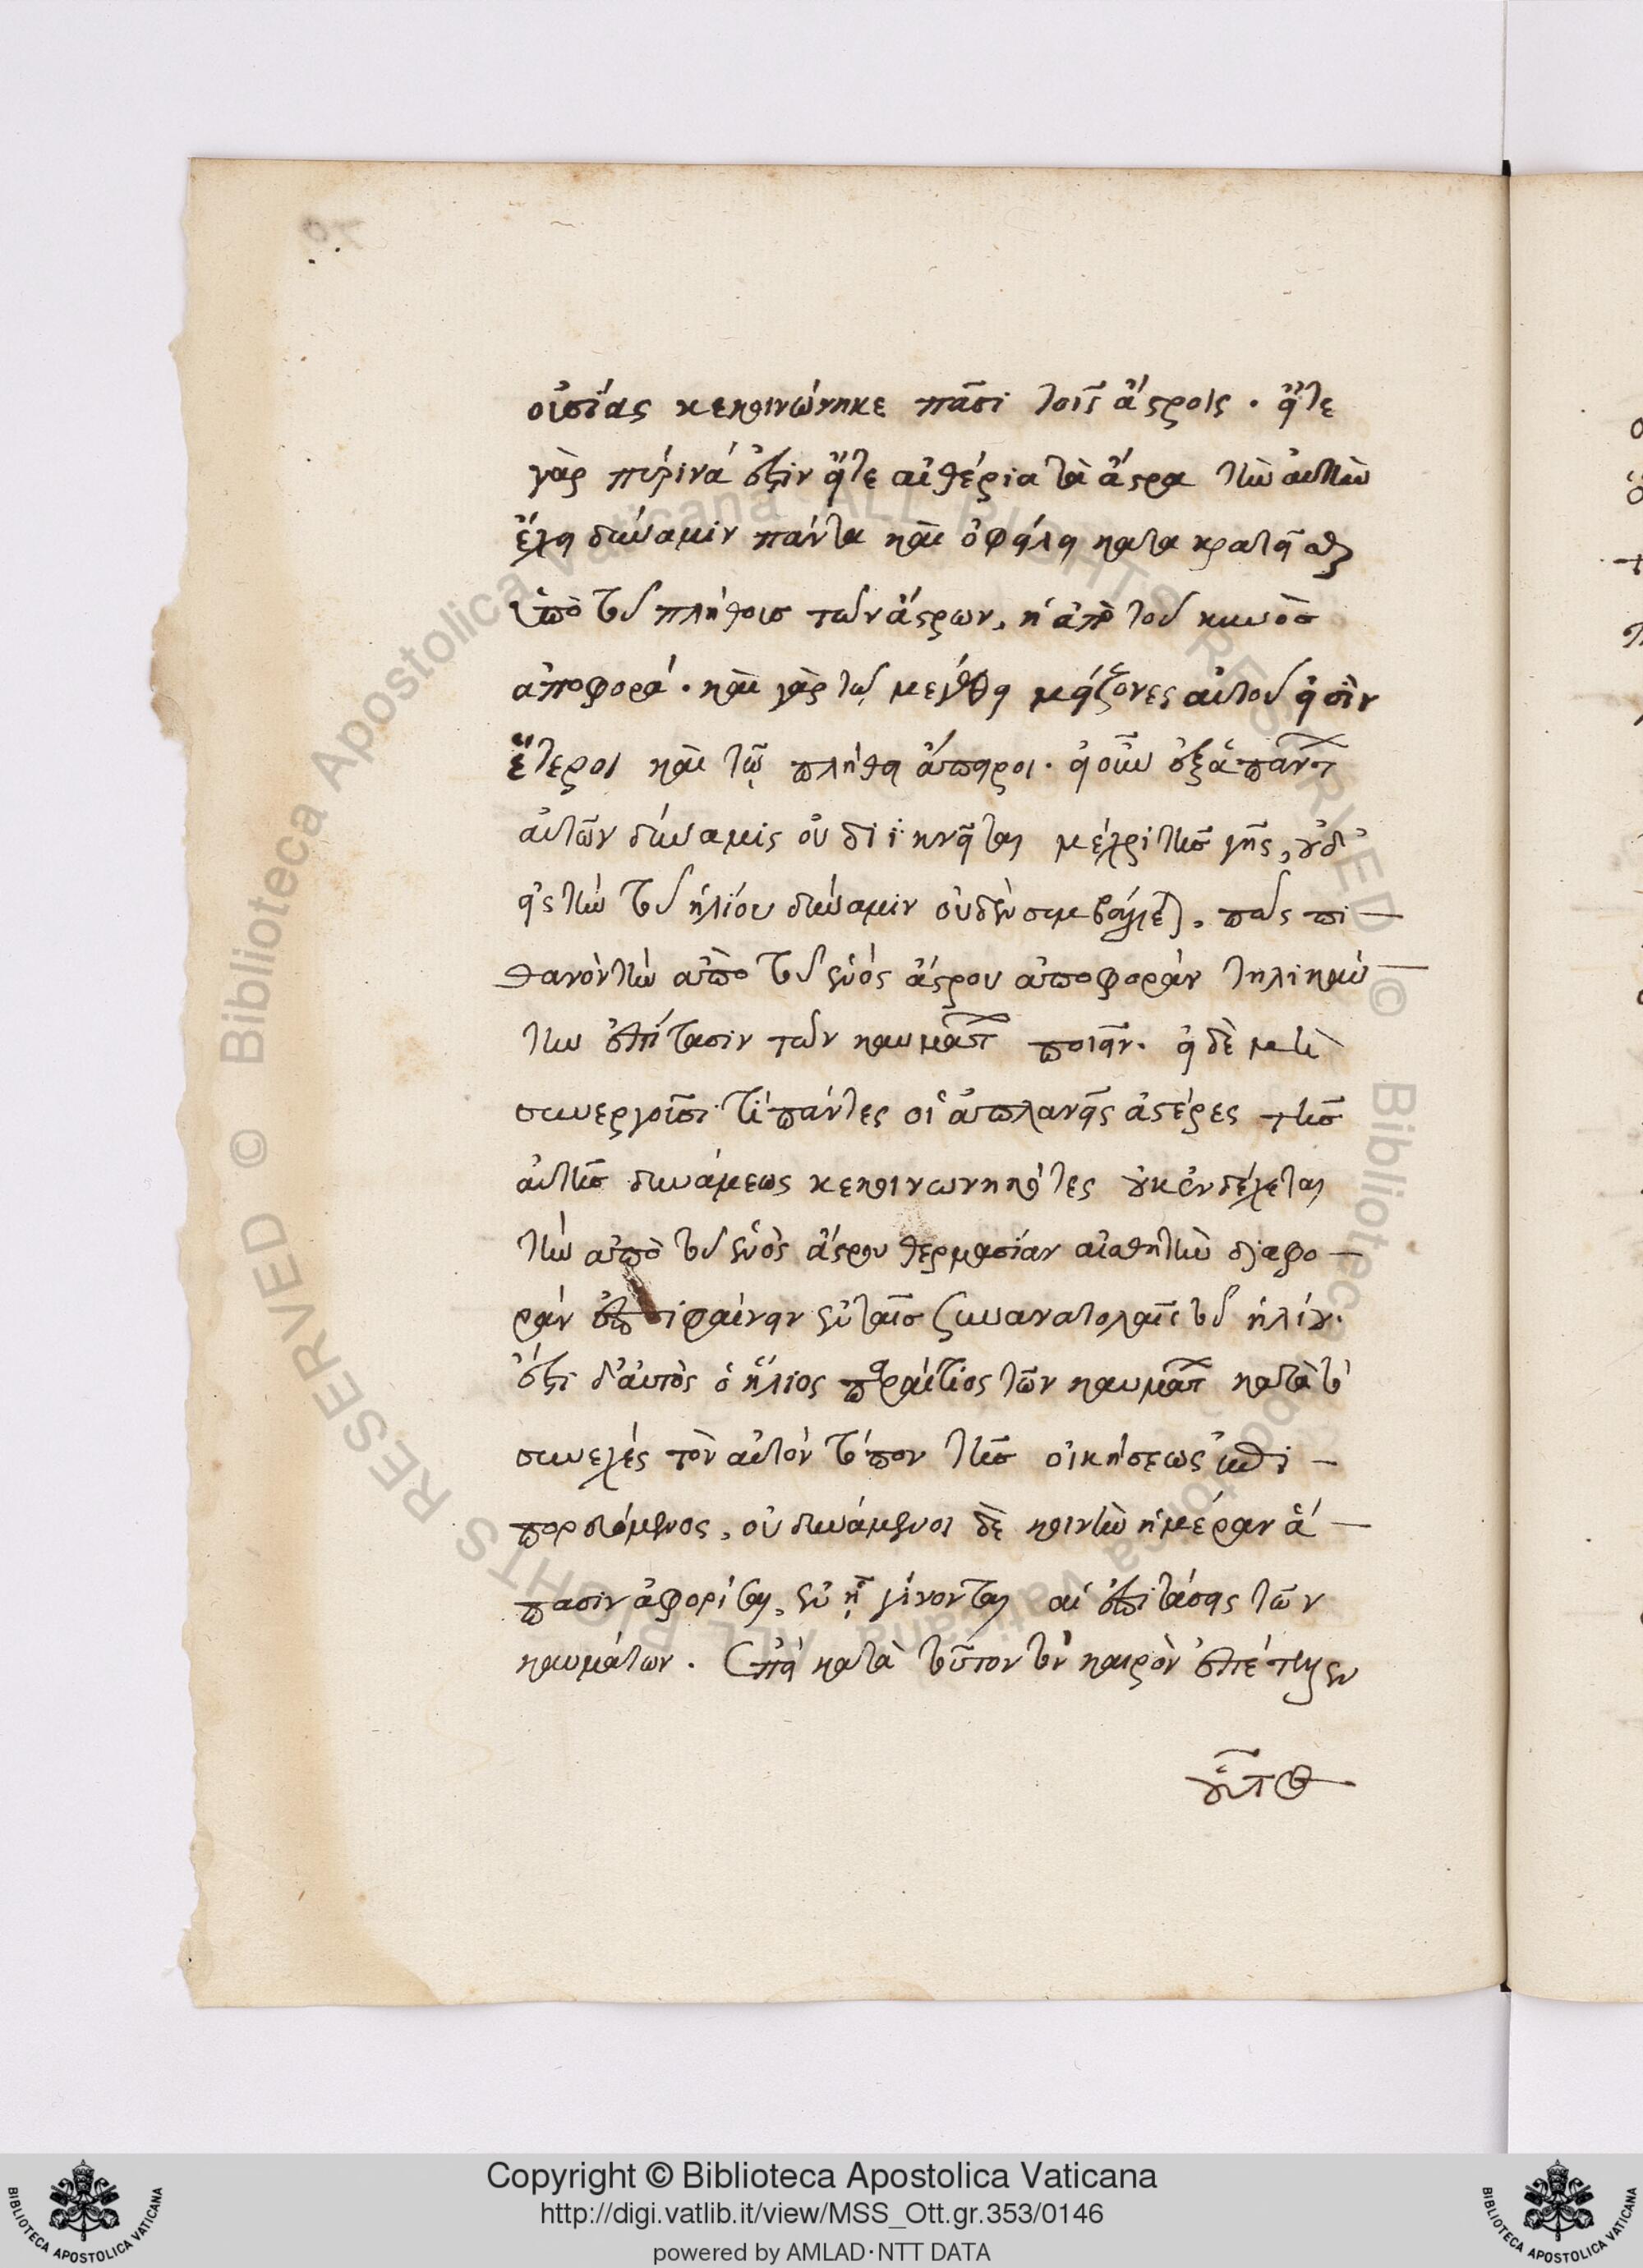 οὐσίας κεκοινώνηκε πᾶσι τοῖς ἄστροις. εἴτε
γὰρ πύρινά ἐστιν εἴτε αἰθέρια τὰ ἄστρα τὴν αὐτὴν
ἔχει δύναμιν πάντα καὶ ὀφείλει κατακρατεῖσθαι
ὑπὸ τοῦ πλήθους τῶν ἄστρων, ἡ ἀπὸ τοῦ κυνὸς
ἀποφορά. καὶ γὰρ τῷ μεγέθει μείζονες αὐτοῦ εἰσὶν
ἕτεροι καὶ τῷ πλήθει ἄπειροι. εἰ οὖν ἐξ ἁπάντ
αὐτῶν δύναμις οὐ διϊκνεῖται μέχρι τῆς γῆς, οὐδ'
εἰς τὴν τοῦ ἡλίου δύναμιν οὐδὲν συμβάλλεται, πῶς πι
θανὸν τὴν ἀπὸ τοῦ ἑνὸς ἄστρου ἀποφορὰν τηλικαύ
την ἐπίτασιν τῶν καυμάτ ποιεῖν. εἰ δὲ μετὰ
συνεργοῦσί τι πάντες οἱ ἀπλανεῖς ἀστέρες τῆς
αὐτῆς δυνάμεως κεκοινωνηκότες οὐκ ἐνδέχεται
τὴν ἀπὸ τοῦ ἑνὸς ἄστρου θερμασίαν αἰσθητὴν διαφο
ρὰν ἐπιφαίνειν ἐν ταῖς συνανατολαῖς τοῦ ἡλίου.
ἔστι δ' αὐτὸς ὁ ἥλιος παραίτιος τῶν καυμάτ κατὰ τὸ
συνεχές τὸν αὐτὸν τόπον τῆς οἰκήσεως ἐπι
πορευόμενος, οὐ δυνάμενοι δὲ κοινὴν ἡμέραν ἅ
πασιν ἀφορίται, ἐν ᾗ γίνονται αἱ ἐπιτάσεις τῶν
καυμάτων. ἐπεὶ κατὰ τοῦτον τὸν καιρὸν ἐπέτυχεν
οὗτος
Copyright © Biblioteca Apostolica Vaticana
http://digi.vatlib.it/view/MSS_Ott.gr.353/0146
powered by AMLAD·NTT DATA
BIBLIOTECA APOSTOLICA VATICANA
BIBLIOTECA APOSTOLICA VATICANA
© Biblioteca Apostolica Vaticana ALL RIGHTS RESERVED © Biblioteca Apostolica Vaticana ALL RIGHTS RESERVED